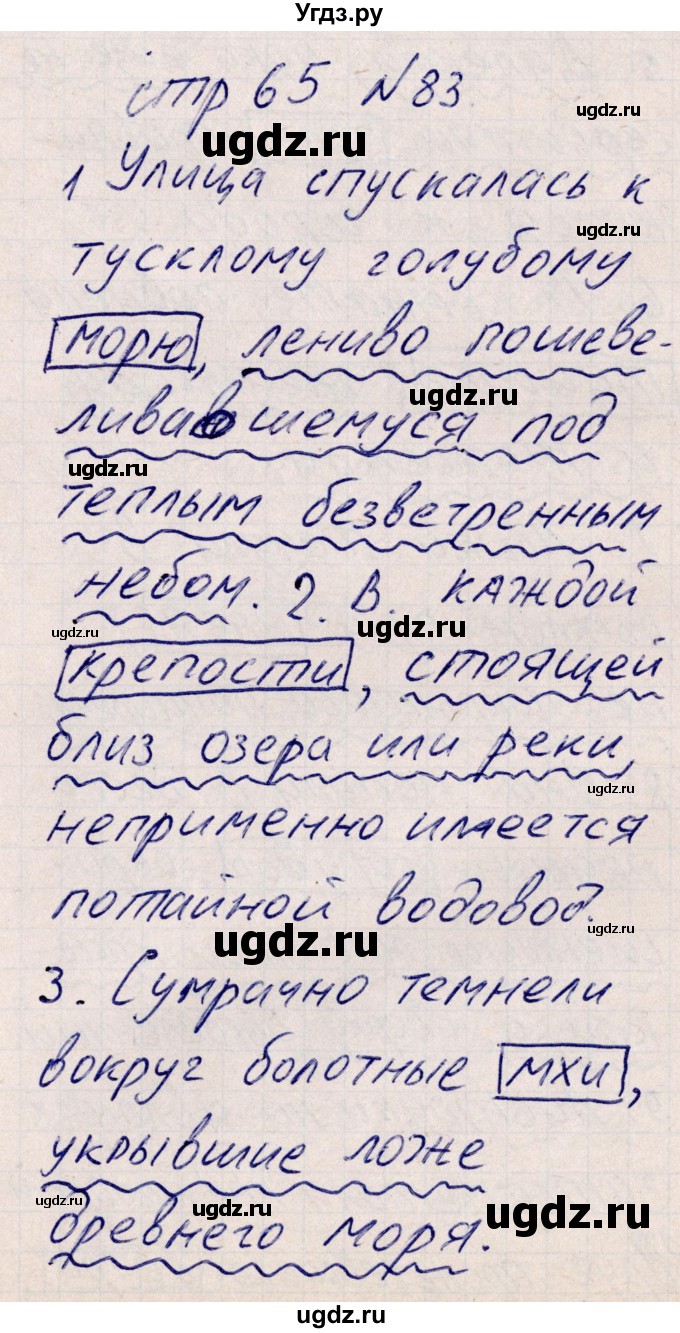 Угдз.ру
стр 65 №83
ugdz.ru
ugdz.ru
1 Улица спускалась к
ugdz.ru
тусклому голубому
ugdz.ru
морю, лениво пошеве-
ugdz.ru
ливавшемуся под
ugdz.ru
теплым безветренным
небом. 2. В. каждой
ugdz.ru
ugdz.ru
крепости, стоящей
близ озера или реки,
ugdz.ru
неприменно имеется
потайной водовод.
ugdz.ru
ugdz.ru
3. Сумрачно темнели
вокруг болотные мхи,
укрывшие ложе
ugdz.ru
ugdz.ru
древнего моря.
ugdz.ru